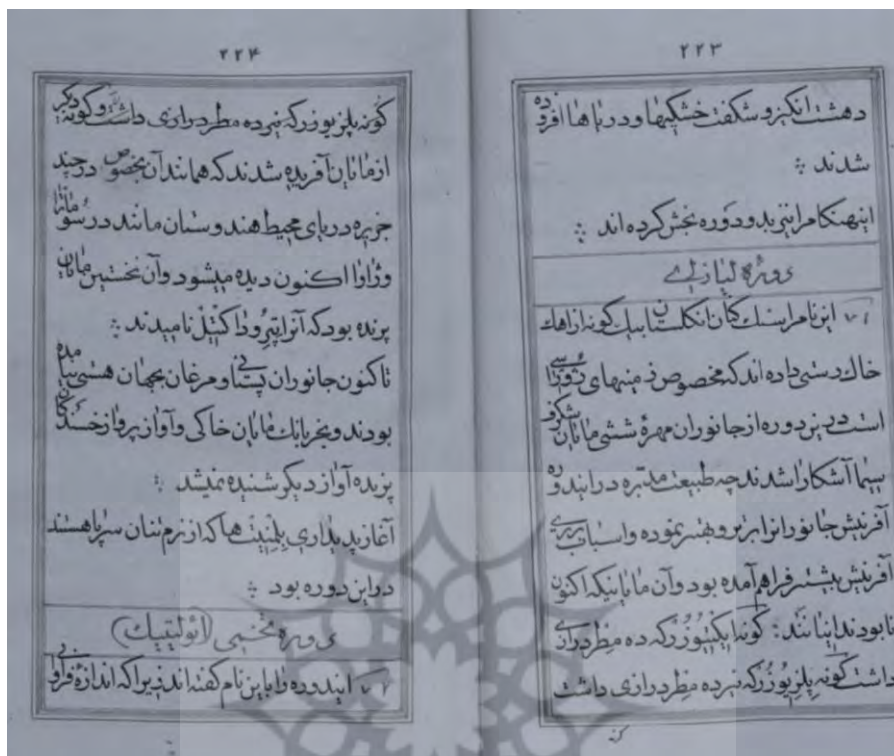 ۲۲۳
دهشت انگیز و شکفت خشکیها و در دریاها افزوده
شدند ؞
اینهنکام را نیز بدو دوره بخش کرده اند ؞
دوره لیازی
این نام را سنک کنان انکلستان بیک گونه از اهک
خاک رستی داده اند که مخصوص زمینهای ژورائسی
است در این دوره از جانوران مهرهٔ ششی مامانان شکرف
سیما آشکارا شدند چه طبیعت مدبره در ایندوره
آفرینش جانورانرا برتر و بهتر نموده و اسباب برتری
آفرینش بیشتر فراهم آمده بود و آن مامانیکه اکنون
نابودند اینانند: گونه ایکتیوزر که ده مطر درازی
داشت گونه پلزیوزر که نیز ده مطر درازی داشت
۲۲۴
گونه پلزیوزر که نیز ده مطر درازی داشت و گونه دیگر
از مامانان آفریده شدند که همانند آن بخصوص در چند
جزیره دریای محیط هندوستان مانند در سوماترا
وژاوا اکنون دیده میشود و آن نخستین مامانان
پرنده بود که آنرا پتروداکتیل نامیدند ؞
تاکنون جانوران پستانی و مرغان بجهان هستی نیامده
بودند و بجز بانک مامانان خاکی و آواز پرواز خزندکان
پرنده آواز دیگر شنیده نمیشد ؞
آغاز پدیداری بلمنیت ها که از نرم تنان سرپا هستند
در این دوره بود ؞
دوره تخمی (ائولیتیک)
۷۷ ایندوره را باین نام گفته اند زیرا که اندازهٔ فراوانی